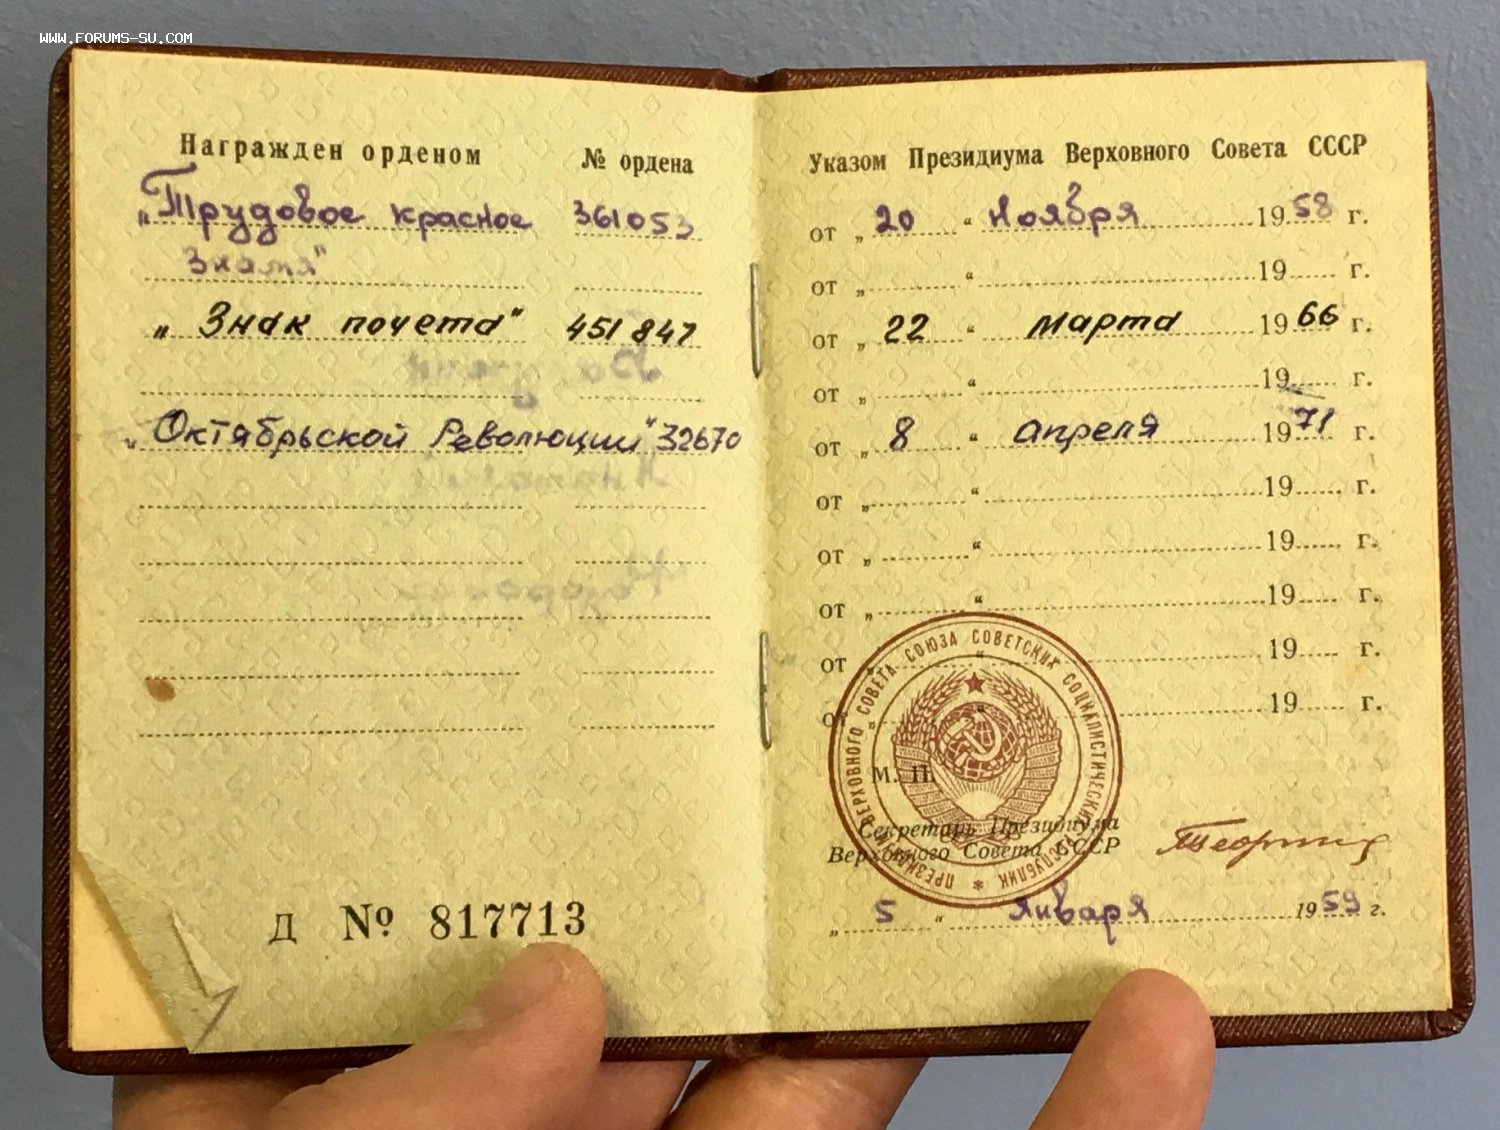 WWW.FORUMS-SU.COM
Награжден орденом № ордена
„Трудовое красное 361053
Знамя"
„Знак почета" 451847
„Октябрьской Революции" 32670
Д № 817713
Указом Президиума Верховного Совета СССР
от „20“ Ноября 1958 г.
от „ “ 19 г.
от „22“ марта 1966 г.
от „ “ 19 г.
от „8“ апреля 1971 г.
от „ “ 19 г.
от „ “ 19 г.
от „ “ 19 г.
от „ “ 19 г.
от „ “ 19 г.
ПРЕЗИДИУМ ВЕРХОВНОГО СОВЕТА СОЮЗА СОВЕТСКИХ СОЦИАЛИСТИЧЕСКИХ РЕСПУБЛИК *
М. П.
Секретарь Президиума
Верховного Совета СССР
„5“ января 1959 г.